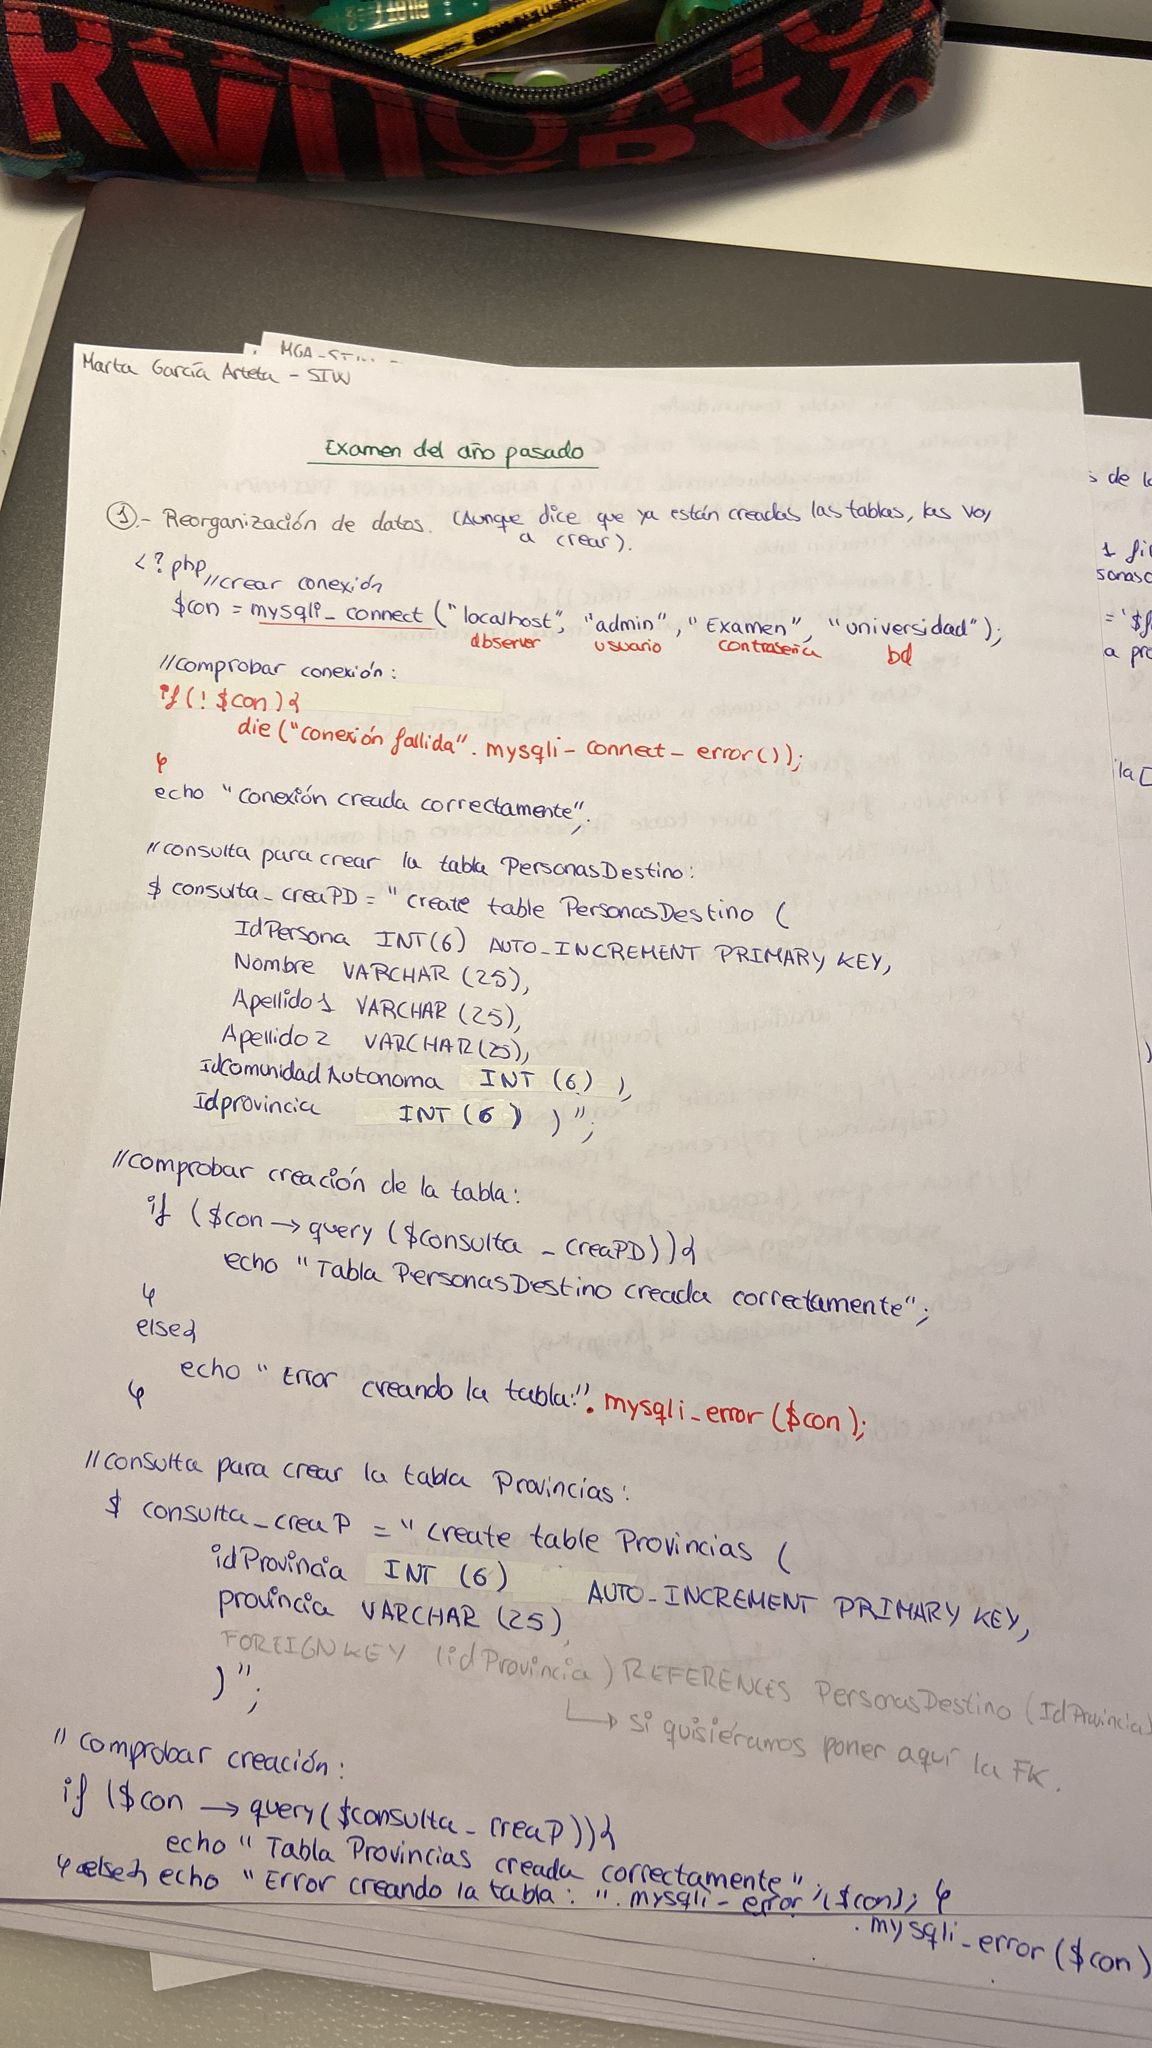 MGA-STW
Marta García Arteta - STW
Examen del año pasado
①.- Reorganización de datos. (Aunque dice que ya están creadas las tablas, las voy
a crear).
<?php //crear conexión
$con = mysqli_connect ("localhost", "admin", "Examen", "universidad");
dbserver usuario contraseña bd
//comprobar conexión:
if(! $con){
die ("conexión fallida". mysqli-connect-error());
}
echo "conexión creada correctamente";
//consulta para crear la tabla PersonasDestino:
$ consulta_creaPD = "create table PersonasDestino (
IdPersona INT(6) AUTO_INCREMENT PRIMARY KEY,
Nombre VARCHAR (25),
Apellido1 VARCHAR (25),
Apellido2 VARCHAR(25),
IdComunidadAutonoma INT (6) ),
Idprovincia INT (6) )";
//comprobar creación de la tabla:
if ($con → query ($consulta_creaPD)){
echo "Tabla PersonasDestino creada correctamente";
}
else{
echo "Error creando la tabla:". mysqli_error ($con);
}
//consulta para crear la tabla Provincias:
$ consulta_creaP = "create table Provincias (
idProvincia INT (6) AUTO_INCREMENT PRIMARY KEY,
provincia VARCHAR (25),
FOREIGN KEY (idProvincia) REFERENCES PersonasDestino (IdProvincia)
)";
↳ si quisiéramos poner aquí la FK.
// comprobar creación:
if ($con → query($consulta_creaP)){
echo "Tabla Provincias creada correctamente";
} else{ echo "Error creando la tabla: ". mysqli_error ($con); }
. mysqli_error ($con)
s de la
= '$f
a pro